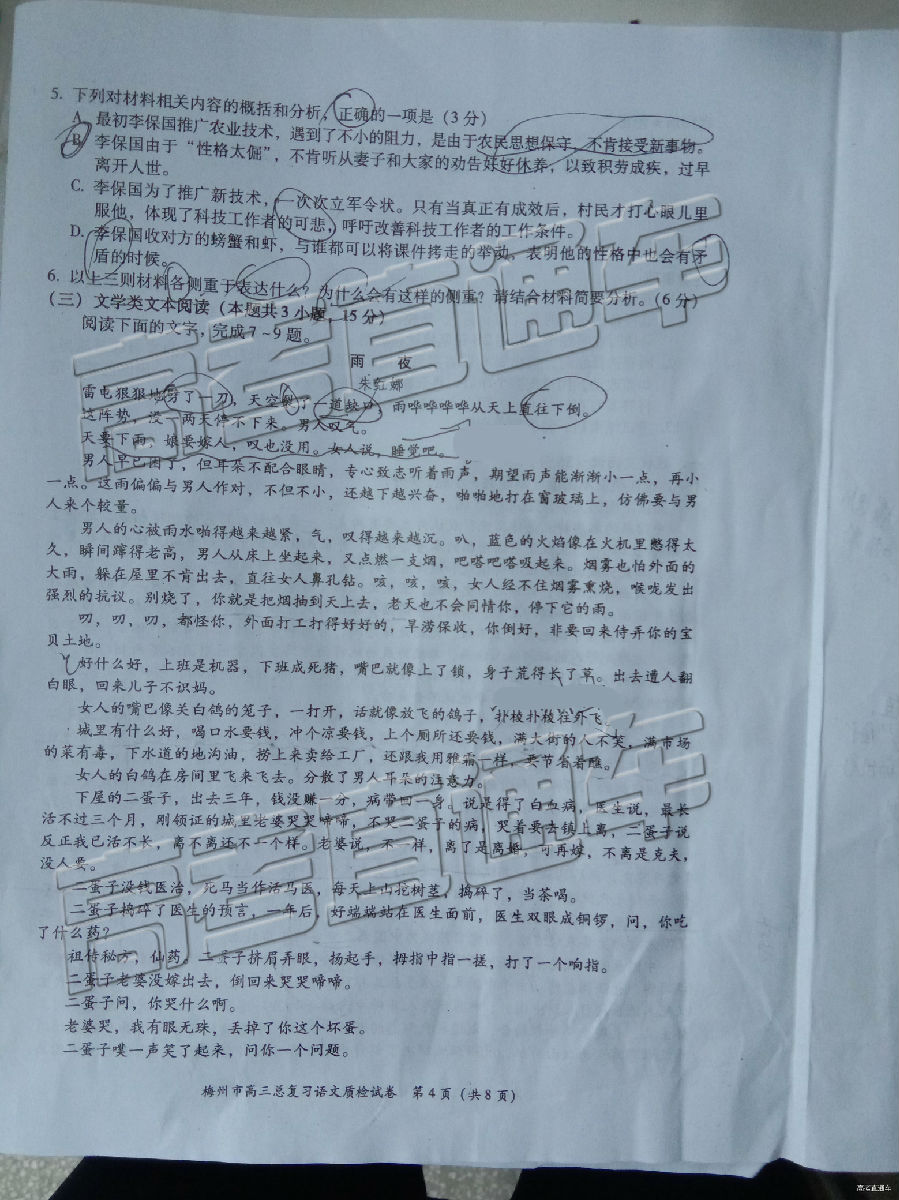 5. 下列对材料相关内容的概括和分析，正确的一项是（3 分）
A. 最初李保国推广农业技术，遇到了不小的阻力，是由于农民思想保守，不肯接受新事物。
B. 李保国由于“性格太倔”，不肯听从妻子和大家的劝告好好休养，以致积劳成疾，过早
离开人世。
C. 李保国为了推广新技术，一次次立军令状。只有当真正有成效后，村民才打心眼儿里
服他，体现了科技工作者的可悲，呼吁改善科技工作者的工作条件。
D. 李保国收对方的螃蟹和虾，与谁都可以将课件拷走的举动，表明他的性格中也会有矛
盾的时候。
6. 以上三则材料各侧重于表达什么？为什么会有这样的侧重？请结合材料简要分析。（6 分）
（三）文学类文本阅读（本题共 3 小题，15 分）
阅读下面的文字，完成 7～9 题。
雨 夜
朱 娜
雷电狠狠地劈了一刀，天空裂了一道缺口，雨哗哗哗哗从天上直往下倒。
这阵势，没一两天停不下来。男人叹气。
天要下雨，娘要嫁人，叹也没用。女人说，睡觉吧。
男人早已困了，但耳朵不配合眼睛，专心致志听着雨声，期望雨声能渐渐小一点，再小
一点。这雨偏偏与男人作对，不但不小，还越下越兴奋，啪啪地打在窗玻璃上，仿佛要与男
人来个较量。
男人的心被雨水啪得越来越紧，气，叹得越来越沉。叭，蓝色的火焰像在火机里憋得太
久，瞬间蹿得老高，男人从床上坐起来，又点燃一支烟，吧嗒吧嗒吸起来。烟雾也怕外面的
大雨，躲在屋里不肯出去，直往女人鼻孔钻。咳，咳，咳，女人经不住烟雾熏烧，喉咙发出
强烈的抗议。别烧了，你就是把烟抽到天上去，老天也不会同情你，停下它的雨。
叨，叨，叨，都怪你，外面打工打得好好的，旱涝保收，你倒好，非要回来侍弄你的宝
贝土地。
好什么好，上班是机器，下班成死猪，嘴巴就像上了锁，身子荒得长了草。出去遭人翻
白眼，回来儿子不识妈。
女人的嘴巴像关白鸽的笼子，一打开，话就像放飞的鸽子，扑棱扑棱往外飞。
城里有什么好，喝口水要钱，冲个凉要钱，上个厕所还要钱，满大街的人不笑，满市场
的菜有毒，下水道的地沟油，捞上来卖给工厂，还跟我用雅霜一样，要节省着蘸。
女人的白鸽在房间里飞来飞去。分散了男人耳朵的注意力。
下屋的二蛋子，出去三年，钱没赚一分，病带回一身。说是得了白血病，医生说，最长
活不过三个月，刚领证的城里老婆哭哭啼啼，不哭二蛋子的病，哭着要去镇上离，二蛋子说
反正我已活不长，离不离还不一个样。老婆说，不一样，离了是离婚，可再嫁，不离是克夫，
没人要。
二蛋子没钱医治，死马当作活马医，每天上山挖树茎，捣碎了，当茶喝。
二蛋子捣碎了医生的预言，一年后，好端端站在医生面前，医生双眼成铜锣，问，你吃
了什么药？
祖传秘方，仙药。二蛋子挤眉弄眼，扬起手，拇指中指一搓，打了一个响指。
二蛋子老婆没嫁出去，倒回来哭哭啼啼。
二蛋子问，你哭什么啊。
老婆哭，我有眼无珠，丢掉了你这个坏蛋。
二蛋子噗一声笑了起来，问你一个问题。
梅州市高三总复习语文质检试卷 第 4 页（共 8 页）
高考直通车
高考直通车
高考直通车